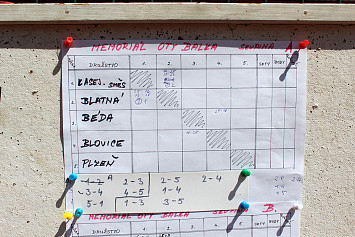 MEMORIAL OTY BALKA SKUPINA A
DRUŽSTVO 1. 2. 3. 4. 5. SETY BODY
1. KASEJ. SMĚS
2. BLATNÁ
3. BÉDA
4. BLOVICE
5. PLZEŇ
1-2 A 2-3 2-5 2-4
3-4 4-5 1-4
5-1 1-3 3-5
MEMORIAL OTY BALKA SKUPINA B.
DRUŽSTVO 1. 2. 3. 4. 5.